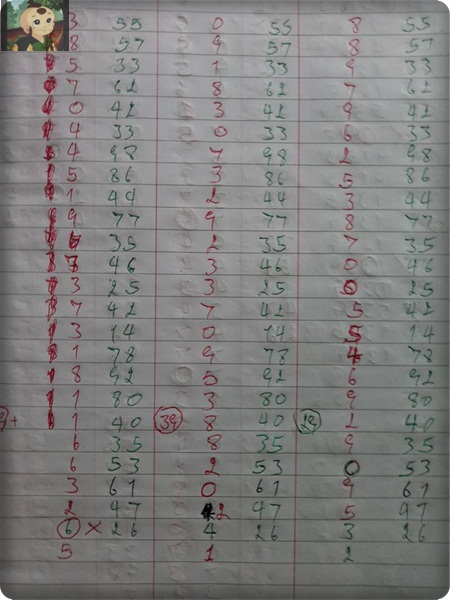 3 55 0 55 8 55
8 57 9 57 8 57
5 33 1 33 9 33
7 61 8 61 7 61
0 42 3 42 9 42
4 33 0 33 6 33
4 98 7 98 2 98
5 86 3 86 5 86
1 44 2 44 3 44
9 77 9 77 8 77
35 2 35 7 35
7 46 3 46 0 46
3 25 3 25 0 25
7 42 7 42 5 42
3 14 0 14 5 14
1 78 9 78 4 78
8 92 5 92 6 92
1 80 3 80 9 80
1 40 39 8 40 2 40
6 35 8 35 9 35
6 53 2 53 0 53
3 61 0 61 9 61
2 47 2 47 5 47
6 × 26 4 26 3 26
5 1 2